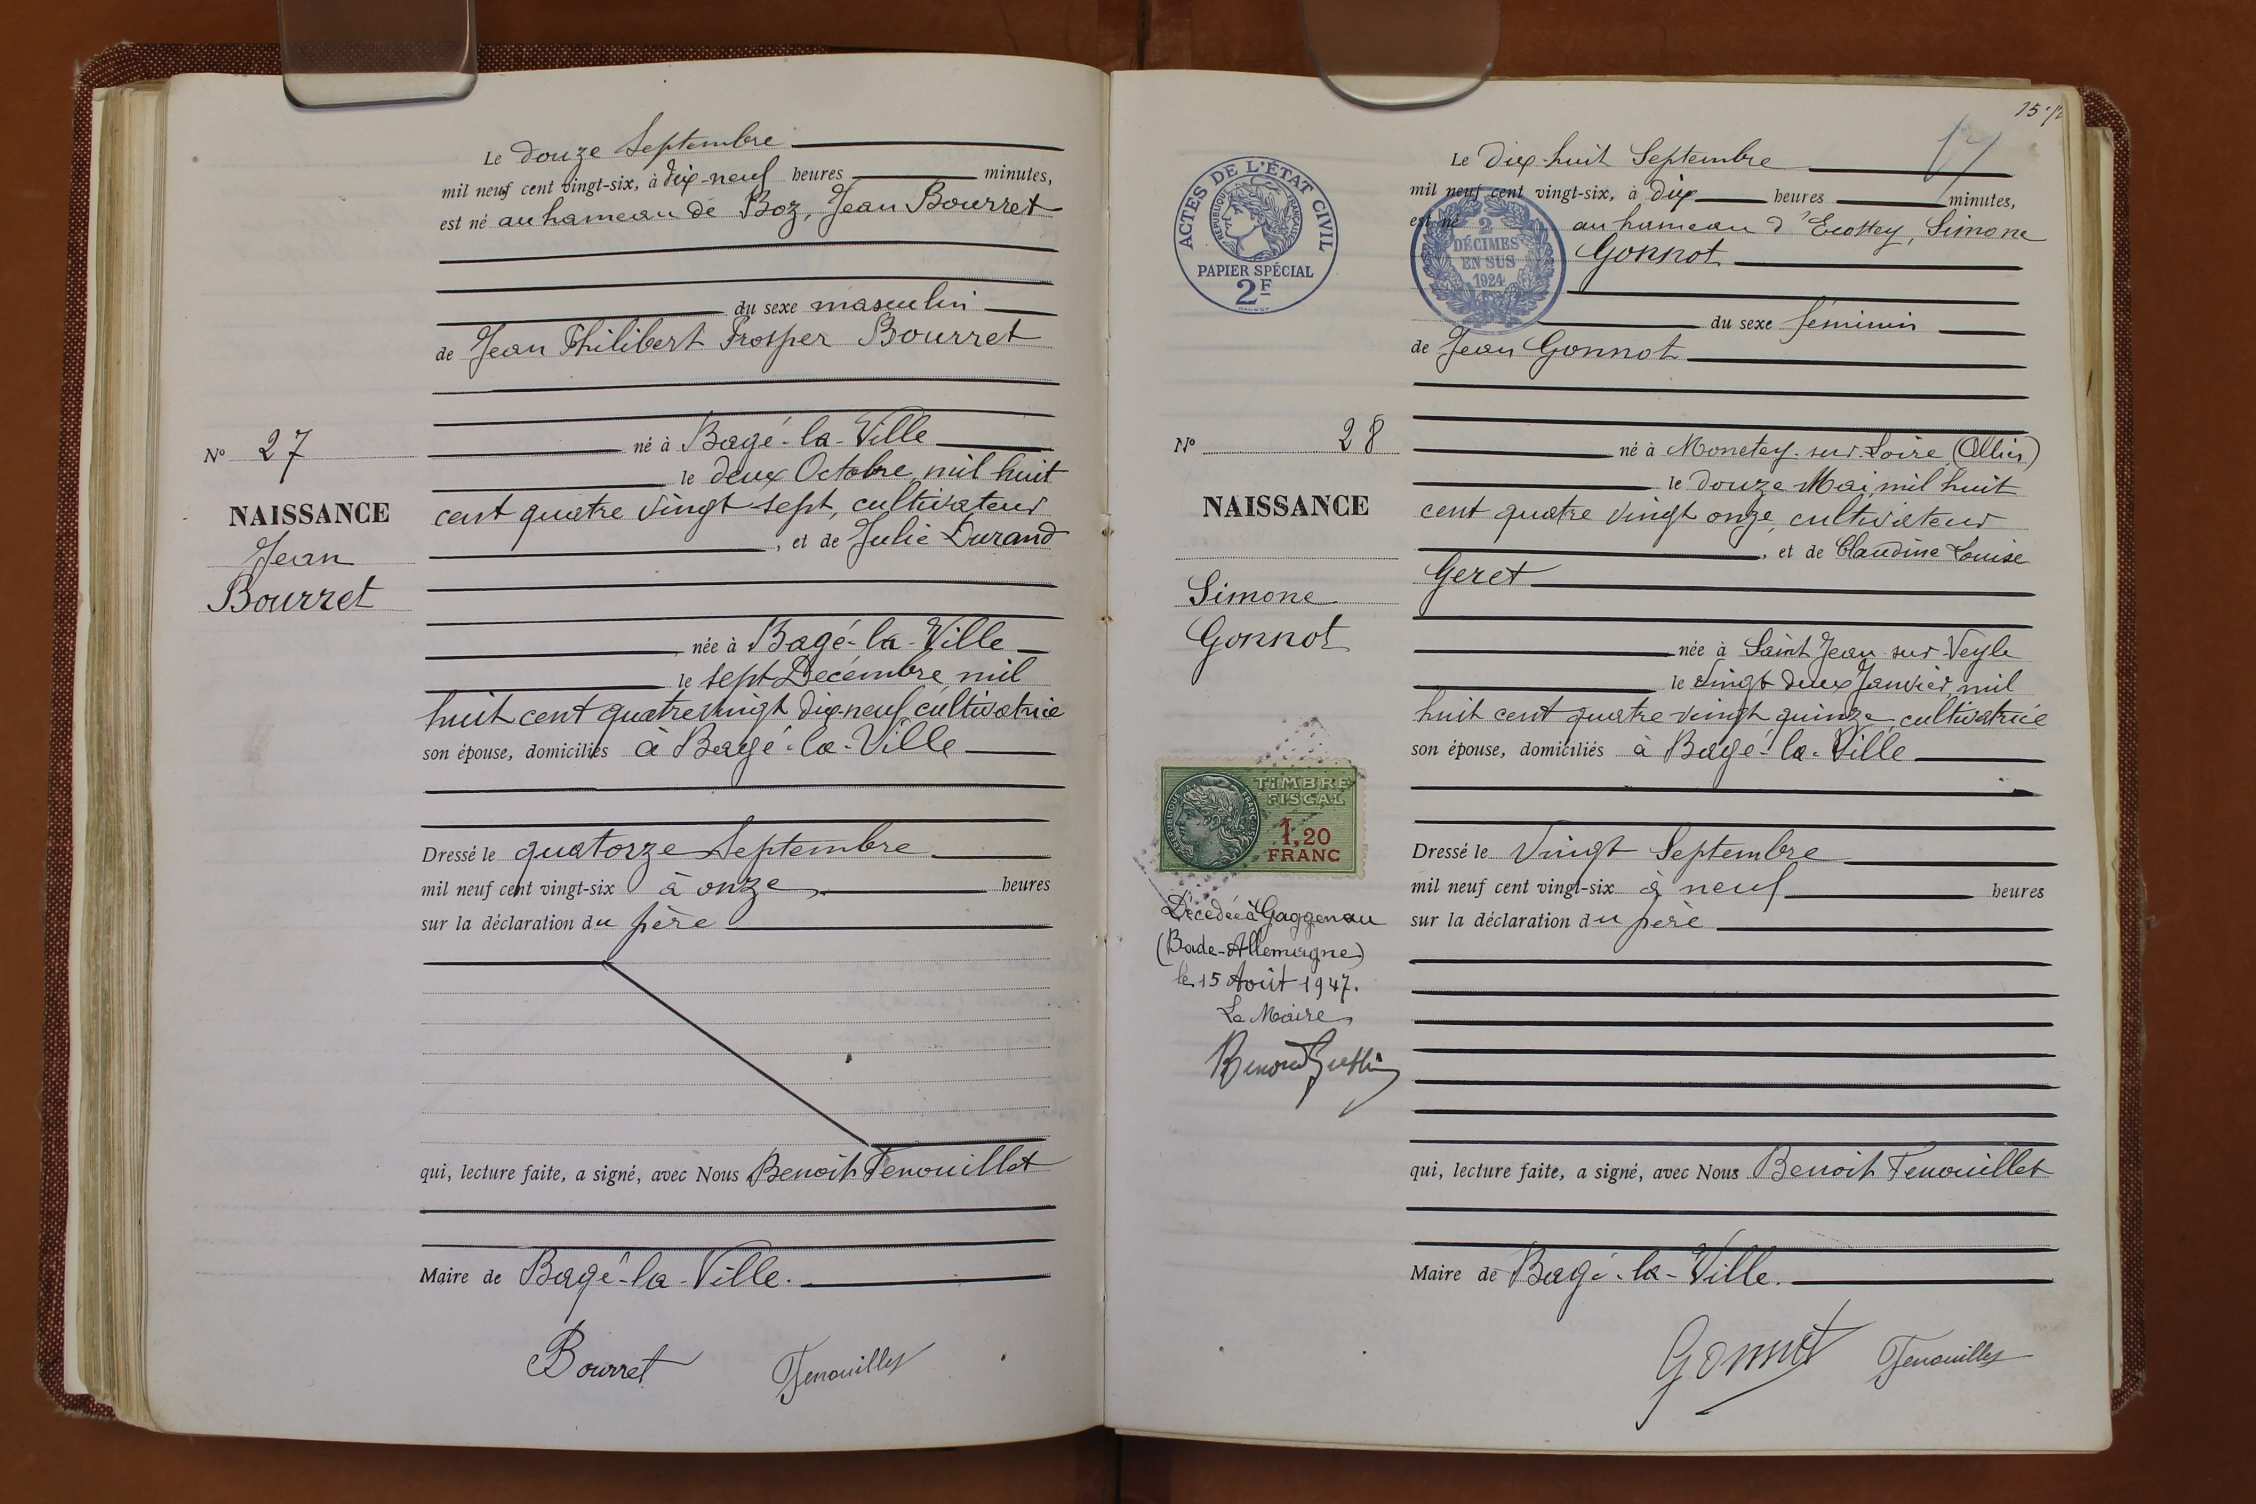 Le douze Septembre
mil neuf cent vingt-six, à dix-neuf heures minutes,
est né au hameau de Boz, Jean Bourret
du sexe masculin
de Jean Philibert Prosper Bourret
né à Bagé-la-Ville
le deux Octobre mil huit
cent quatre vingt sept, cultivateur
, et de Julie Durand
née à Bagé-la-Ville
le sept Décembre mil
huit cent quatre vingt dix-neuf cultivatrice
son épouse, domiciliés à Bagé-la-Ville
Dressé le quatorze Septembre
mil neuf cent vingt-six à onze heures
sur la déclaration du père
qui, lecture faite, a signé, avec Nous Benoit Fenouillet
Maire de Bagé-la-Ville.
Bourret Fenouillet
N° 27
NAISSANCE
Jean
Bourret
15
17
Le Dix-huit Septembre
mil neuf cent vingt-six, à dix heures minutes,
est né au hameau d'Ecossey, Simone
Gonnot
du sexe féminin
de Jean Gonnot
né à Monetey-sur-Loire (Allier)
le douze Mai mil huit
cent quatre vingt onze cultivateur
, et de Claudine Louise
Geret
née à Saint Jean sur Veyle
le vingt deux Janvier mil
huit cent quatre vingt quinze cultivatrice
son épouse, domiciliés à Bagé-la-Ville
Dressé le Vingt Septembre
mil neuf cent vingt-six à neuf heures
sur la déclaration du père
qui, lecture faite, a signé, avec Nous Benoit Fenouillet
Maire de Bagé-la-Ville.
Gonnot Fenouillet
ACTES DE L'ÉTAT CIVIL
RÉPUBLIQUE FRANÇAISE
PAPIER SPÉCIAL
2F
2
DÉCIMES
EN SUS
1924
N° 28
NAISSANCE
Simone
Gonnot
RÉPUBLIQUE FRANÇAISE
TIMBRE
FISCAL
1,20
FRANC
Décédée à Gaggenau
(Bade-Allemagne)
le 15 Août 1947.
Le Maire,